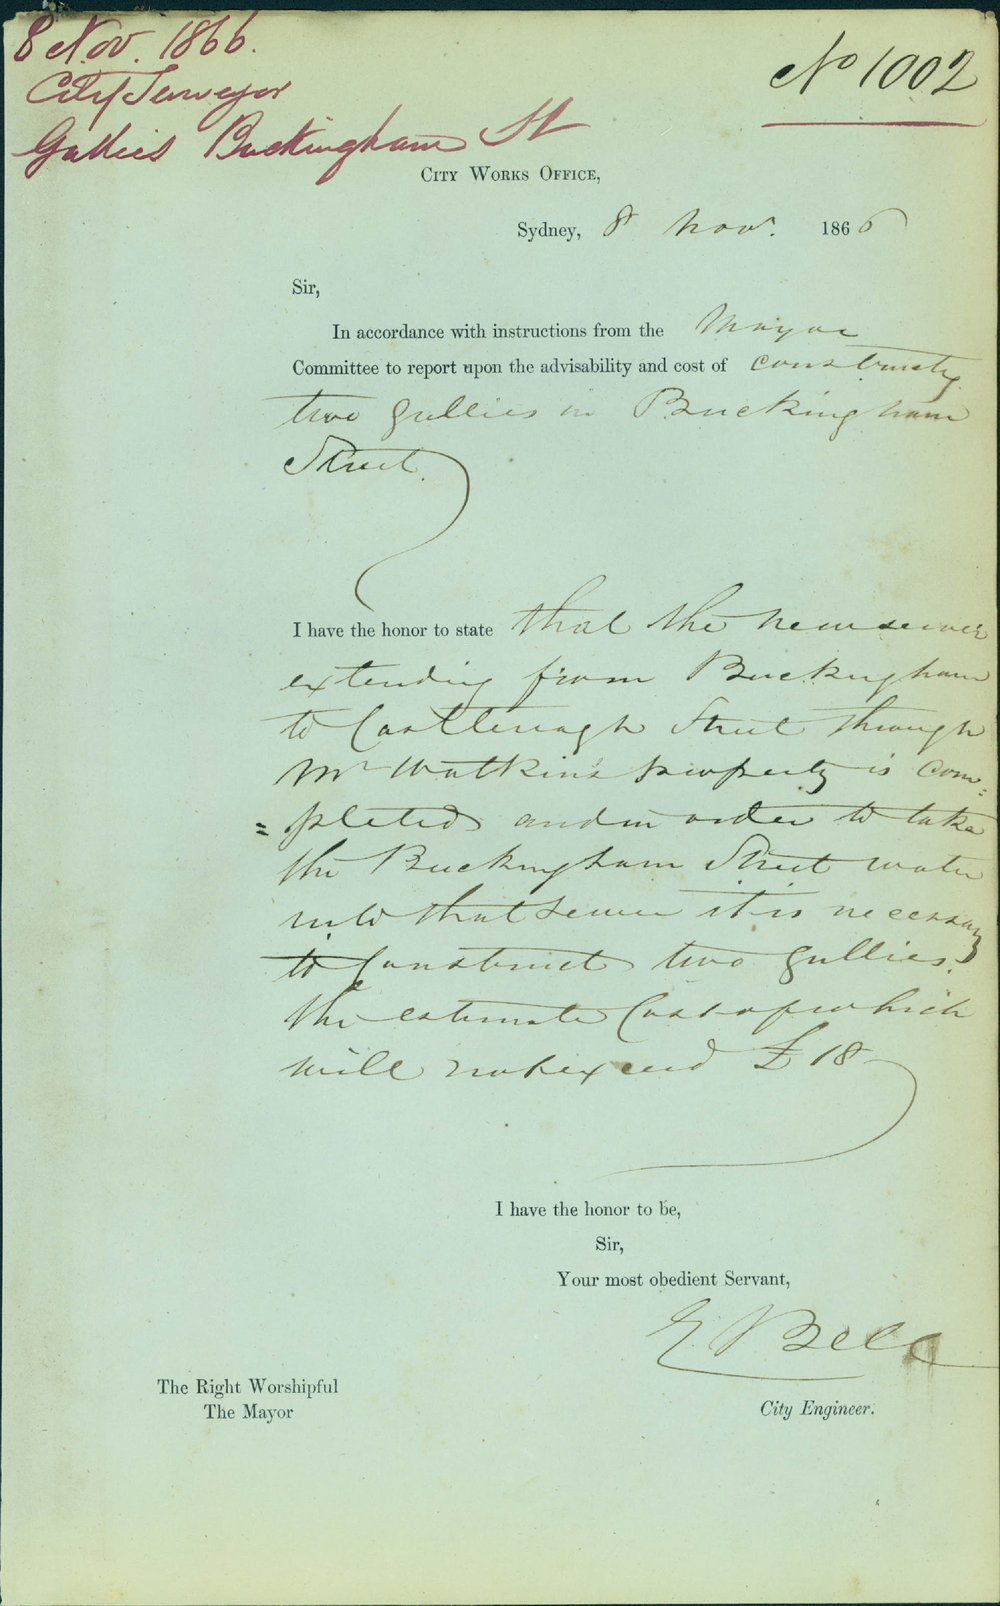 8 Nov. 1866.
City Surveyor
Gullies Buckingham St
No 1002
City Works Office,
Sydney, 8 Nov. 1866
Sir,
In accordance with instructions from the Mayor
Committee to report upon the advisability and cost of constructg
two gullies in Buckingham
Street.
I have the honor to state that the new sewer
extending from Buckingham
to Castlereagh Street through
Mr Watkins property is com=
=pleted and in order to take
the Buckingham Street water
into that sewer it is necessary
to Construct two gullies.
the estimate Cost of which
will not exceed £18
I have the honor to be,
Sir,
Your most obedient Servant,
E Bell
City Engineer.
The Right Worshipful
The Mayor